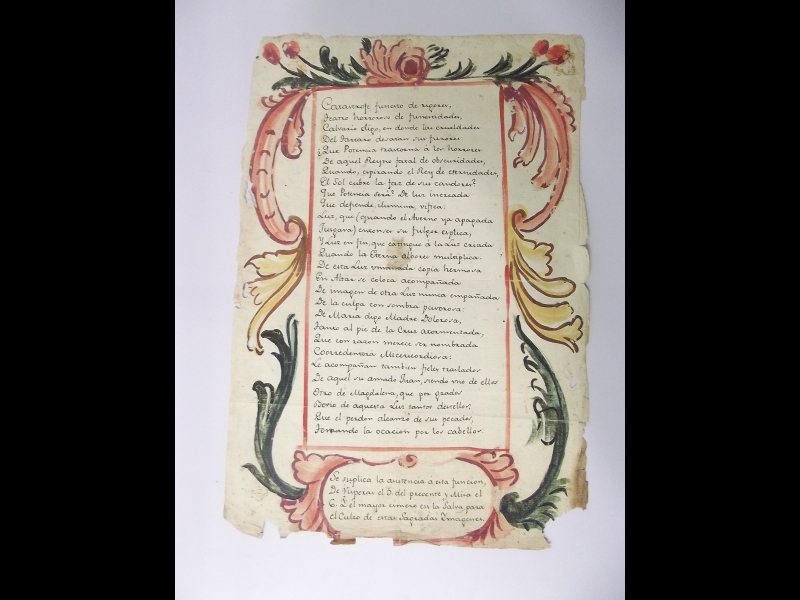 Catavrofe funesto de rigores,
Teatro horroroso de funestidades,
Calvario digo, en donde las crueldades
Del Tartaro desatan sus furores.
¿Que Potencia trastorna á los horrores
De aquel Reyno fatal de obscuridades,
Quando, espirando el Rey de eternidades,
El Sol cubre la faz de sus candores?
Que Potencia será? De luz increada
Que defiende, ilumina, vifica:
Luz, que (quando el Averno ya apagada
Jusgava) entonses su fulgor esplica,
Y Luz en fin, que extingue á la Luz criada
Quando la Eterna albores multiplica.
De esta Luz copia hermosa
En Altar se coloca acompañada
De imagen de otra Luz nunca empañada
De la culpa con sombra pavorosa:
De Maria digo Madre Dolorosa,
Junto al pie de la Cruz atormentada,
Que con razon merece ser nombrada
Coorredentora Misericordiosa:
Le acompañan tambien fieles traslados
De aquel su amado Juan, siendo uno de ellos
Otro de Magdalena, que por grados
Bevio de aquesta Luz tantos destellos,
Que el perdon alcanzó de sus pecados,
Tomando la ocacion por los cabellos.
Se suplica la asistencia a esta funcion,
De Visperas el 5 del precente y Misa el
6. Y el mayor esmero en la Salva para
el Culto de estas Sagradas Imagenes.